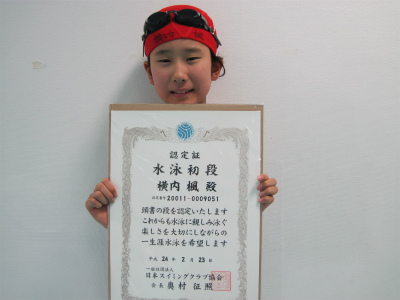 認定証
水泳初段
横内 楓 殿
認定番号 20011-0009051
頭書の段を認定いたします
これからも水泳に親しみ泳ぐ
楽しさを大切にしながらの
一生涯水泳を希望します
平成 24 年 2 月 23 日
一般社団法人
日本スイミングクラブ協会
会長 奥村 征照